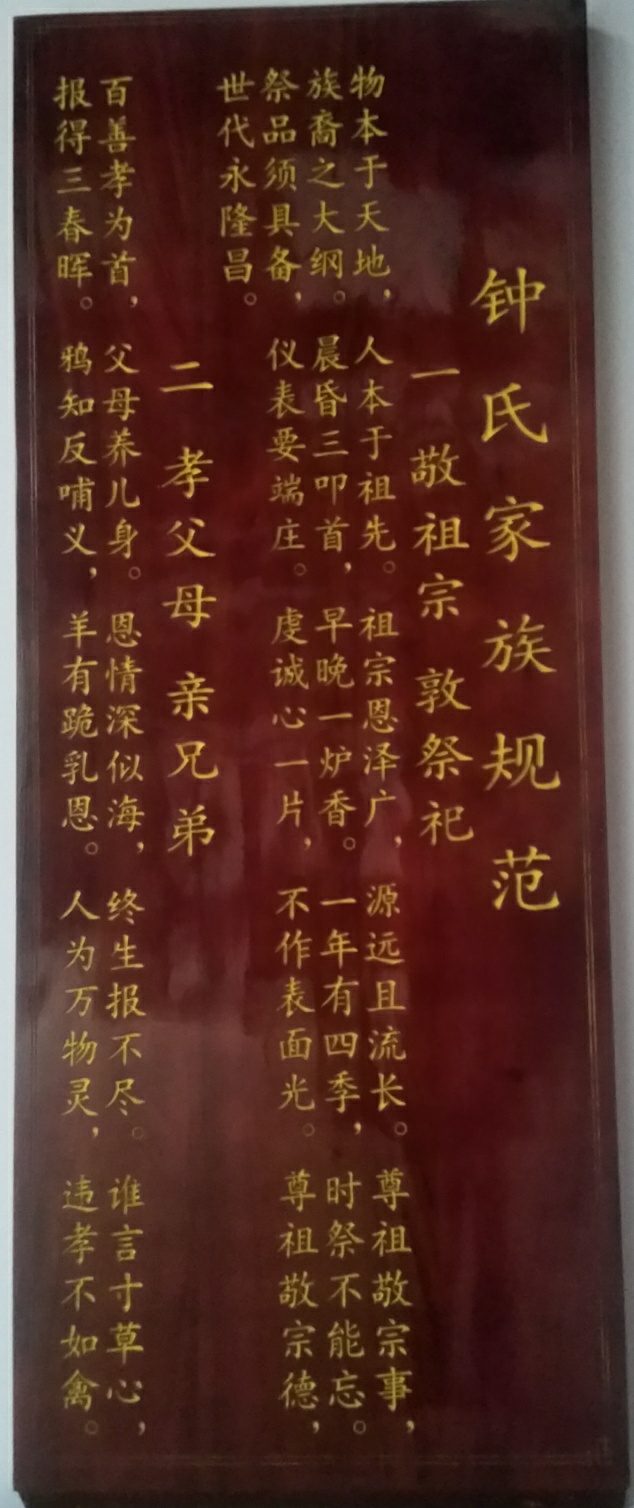 钟氏家族规范
一 敬祖宗 敦祭祀
物本于天地，人本于祖先。祖宗恩泽广，源远且流长。尊祖敬宗事，
族裔之大纲。晨昏三叩首，早晚一炉香。一年有四季，时祭不能忘。
祭品须具备，仪表要端庄。虔诚心一片，不作表面光。尊祖敬宗德，
世代永隆昌。
二 孝父母 亲兄弟
百善孝为首，父母养儿身。恩情深似海，终生报不尽。谁言寸草心，
报得三春晖。鸦知反哺义，羊有跪乳恩。人为万物灵，违孝不如禽。